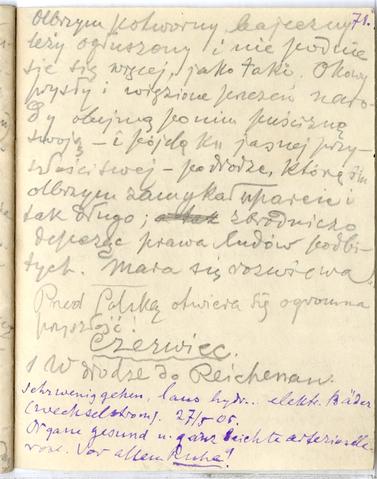 71.
Olbrzym potworny, bajeczny
leży ogłuszony i nie podnie
sie się więcej, jako taki. Okowy
prysły i więzione przezeń naro-
dy obejmą po nim puściznę
swoją – i pójdą ku jasnej przy-
właściwej – po drodze, którą im
olbrzym zamykał uparcie i
tak długo; zbrodniczo
depcząc prawa ludów podbi-
tych. Mara się rozwiewa.
Przed Polską otwiera się ogromna
przyszłość!
Czerwiec.
1 W drodze do Reichenau.
gehen, hydr. elektr. Bäder
(Wechselstrom). 27/5 05.
Organe gesund u. ganz leichte arterioskle-
rose. Vor allem Ruhe!